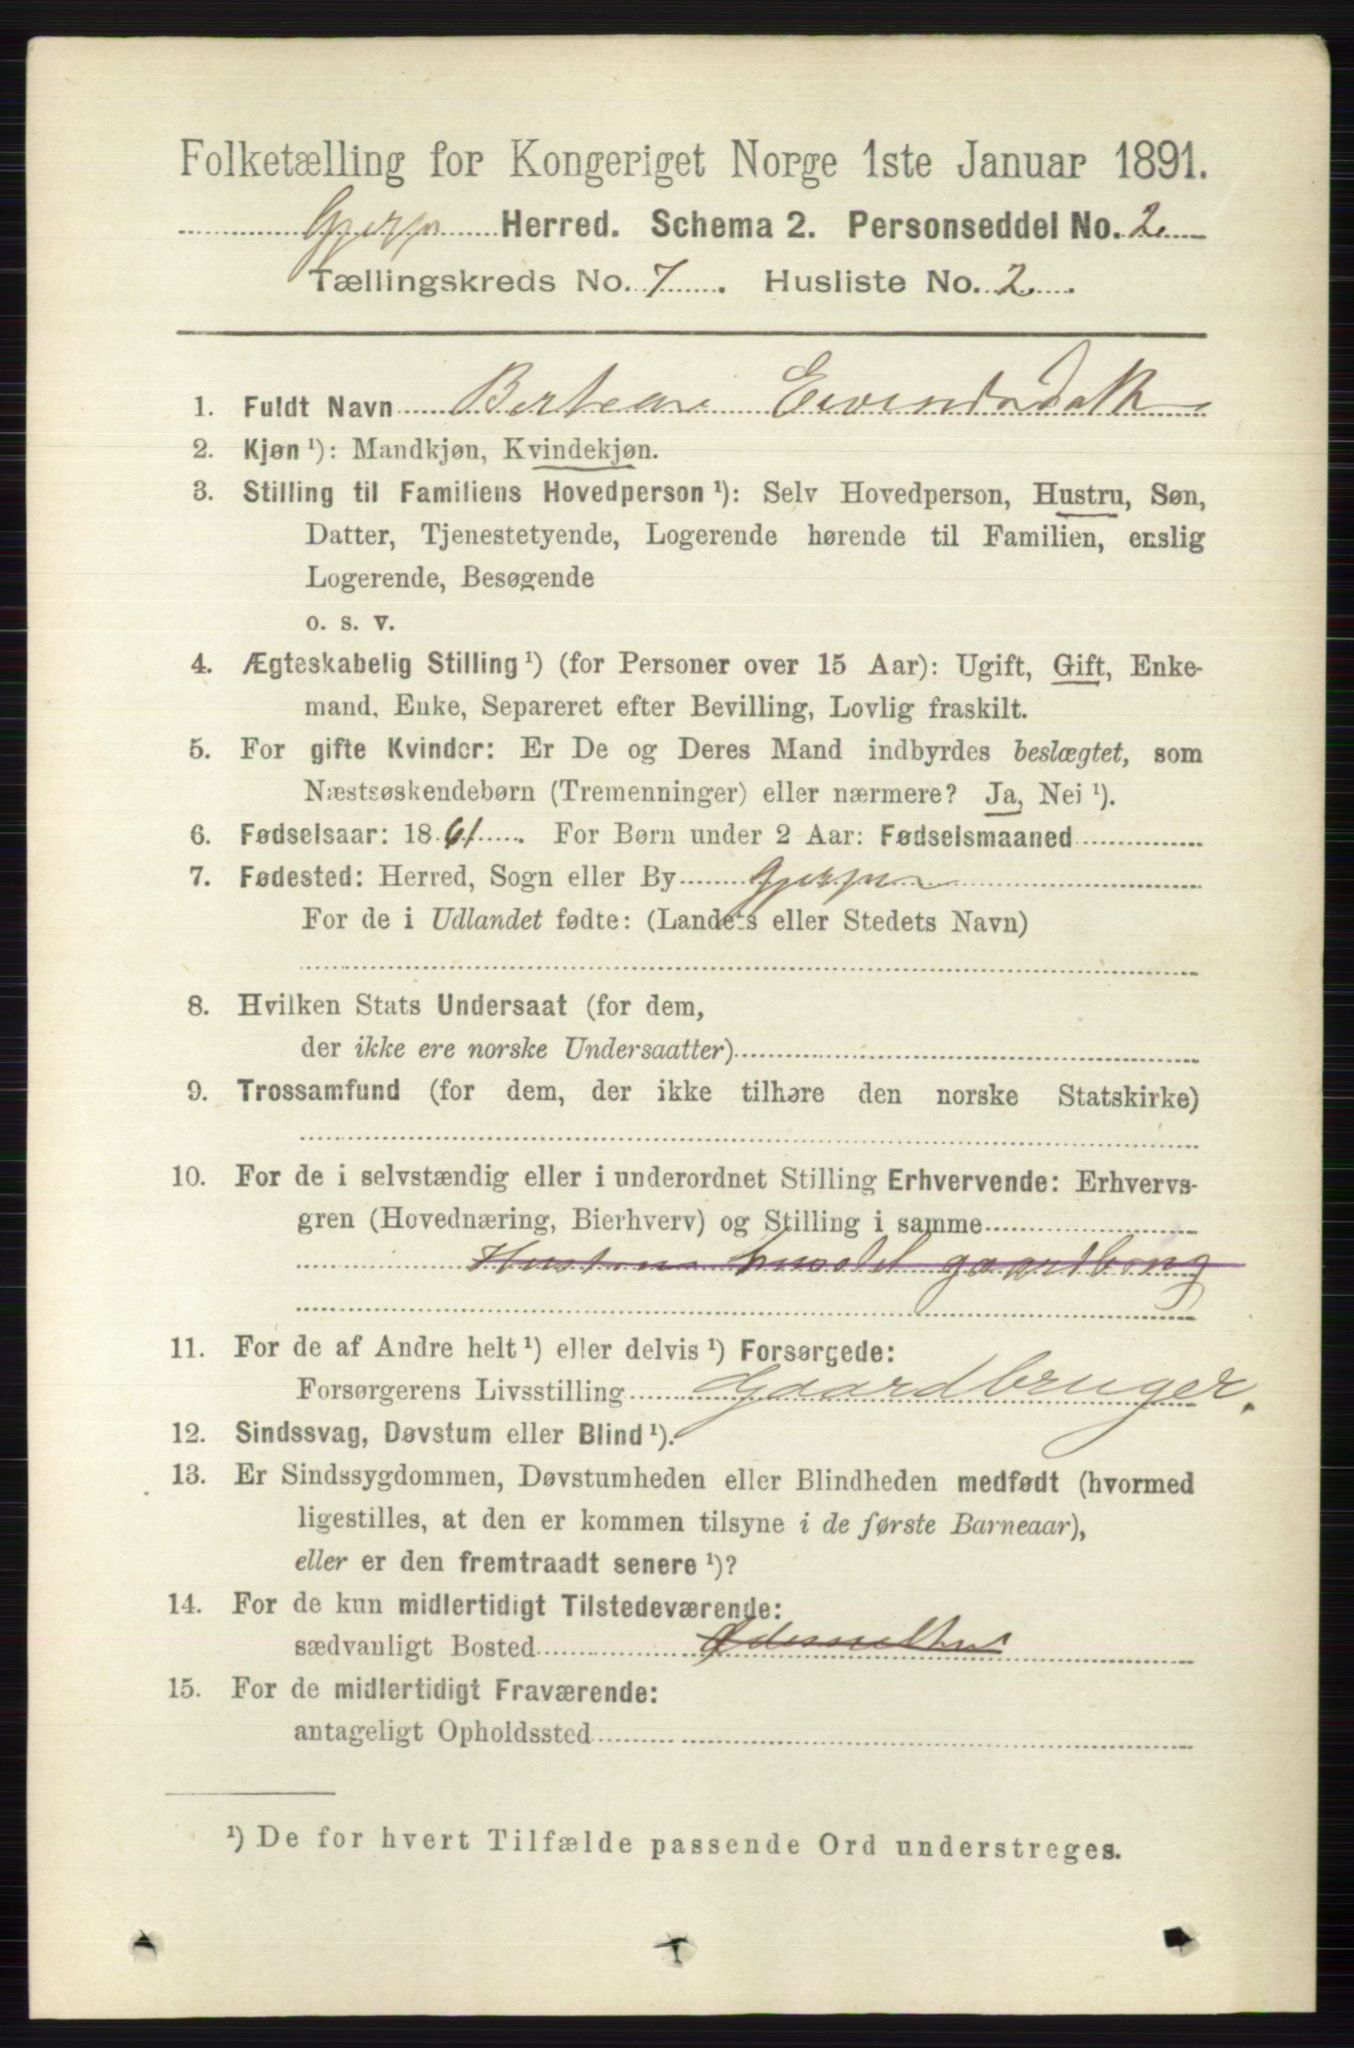 Folketælling for Kongeriget Norge 1ste Januar 1891.
Gjerpen Herred. Schema 2. Personseddel No. 2.
Tællingskreds No. 7. Husliste No. 2.
1. Fuldt Navn Eivindsdatt
2. Kjøn ¹): Mandkjøn, Kvindekjøn.
3. Stilling til Familiens Hovedperson ¹): Selv Hovedperson, Hustru, Søn,
Datter, Tjenestetyende, Logerende hørende til Familien, enslig
Logerende, Besøgende
o. s. v.
4. Ægteskabelig Stilling ¹) (for Personer over 15 Aar): Ugift, Gift, Enke-
mand, Enke, Separeret efter Bevilling, Lovlig fraskilt.
5. For gifte Kvinder: Er De og Deres Mand indbyrdes beslægtet, som
Næstsøskendebørn (Tremenninger) eller nærmere? Ja, Nei ¹).
6. Fødselsaar: 1861. For Børn under 2 Aar: Fødselsmaaned
7. Fødested: Herred, Sogn eller By Gjerpen
For de i Udlandet fødte: (Landets eller Stedets Navn)
8. Hvilken Stats Undersaat (for dem,
der ikke ere norske Undersaatter)
9. Trossamfund (for dem, der ikke tilhøre den norske Statskirke)
10. For de i selvstændig eller i underordnet Stilling Erhvervende: Erhvervs-
gren (Hovednæring, Bierhverv) og Stilling i samme
gaardbrug
11. For de af Andre helt ¹) eller delvis ¹) Forsørgede:
Forsørgerens Livsstilling Gaardbruger.
12. Sindssvag, Døvstum eller Blind ¹).
13. Er Sindssygdommen, Døvstumheden eller Blindheden medfødt (hvormed
ligestilles, at den er kommen tilsyne i de første Barneaar),
eller er den fremtraadt senere ¹)?
14. For de kun midlertidigt Tilstedeværende:
sædvanligt Bosted
15. For de midlertidigt Fraværende:
antageligt Opholdssted
¹) De for hvert Tilfælde passende Ord understreges.